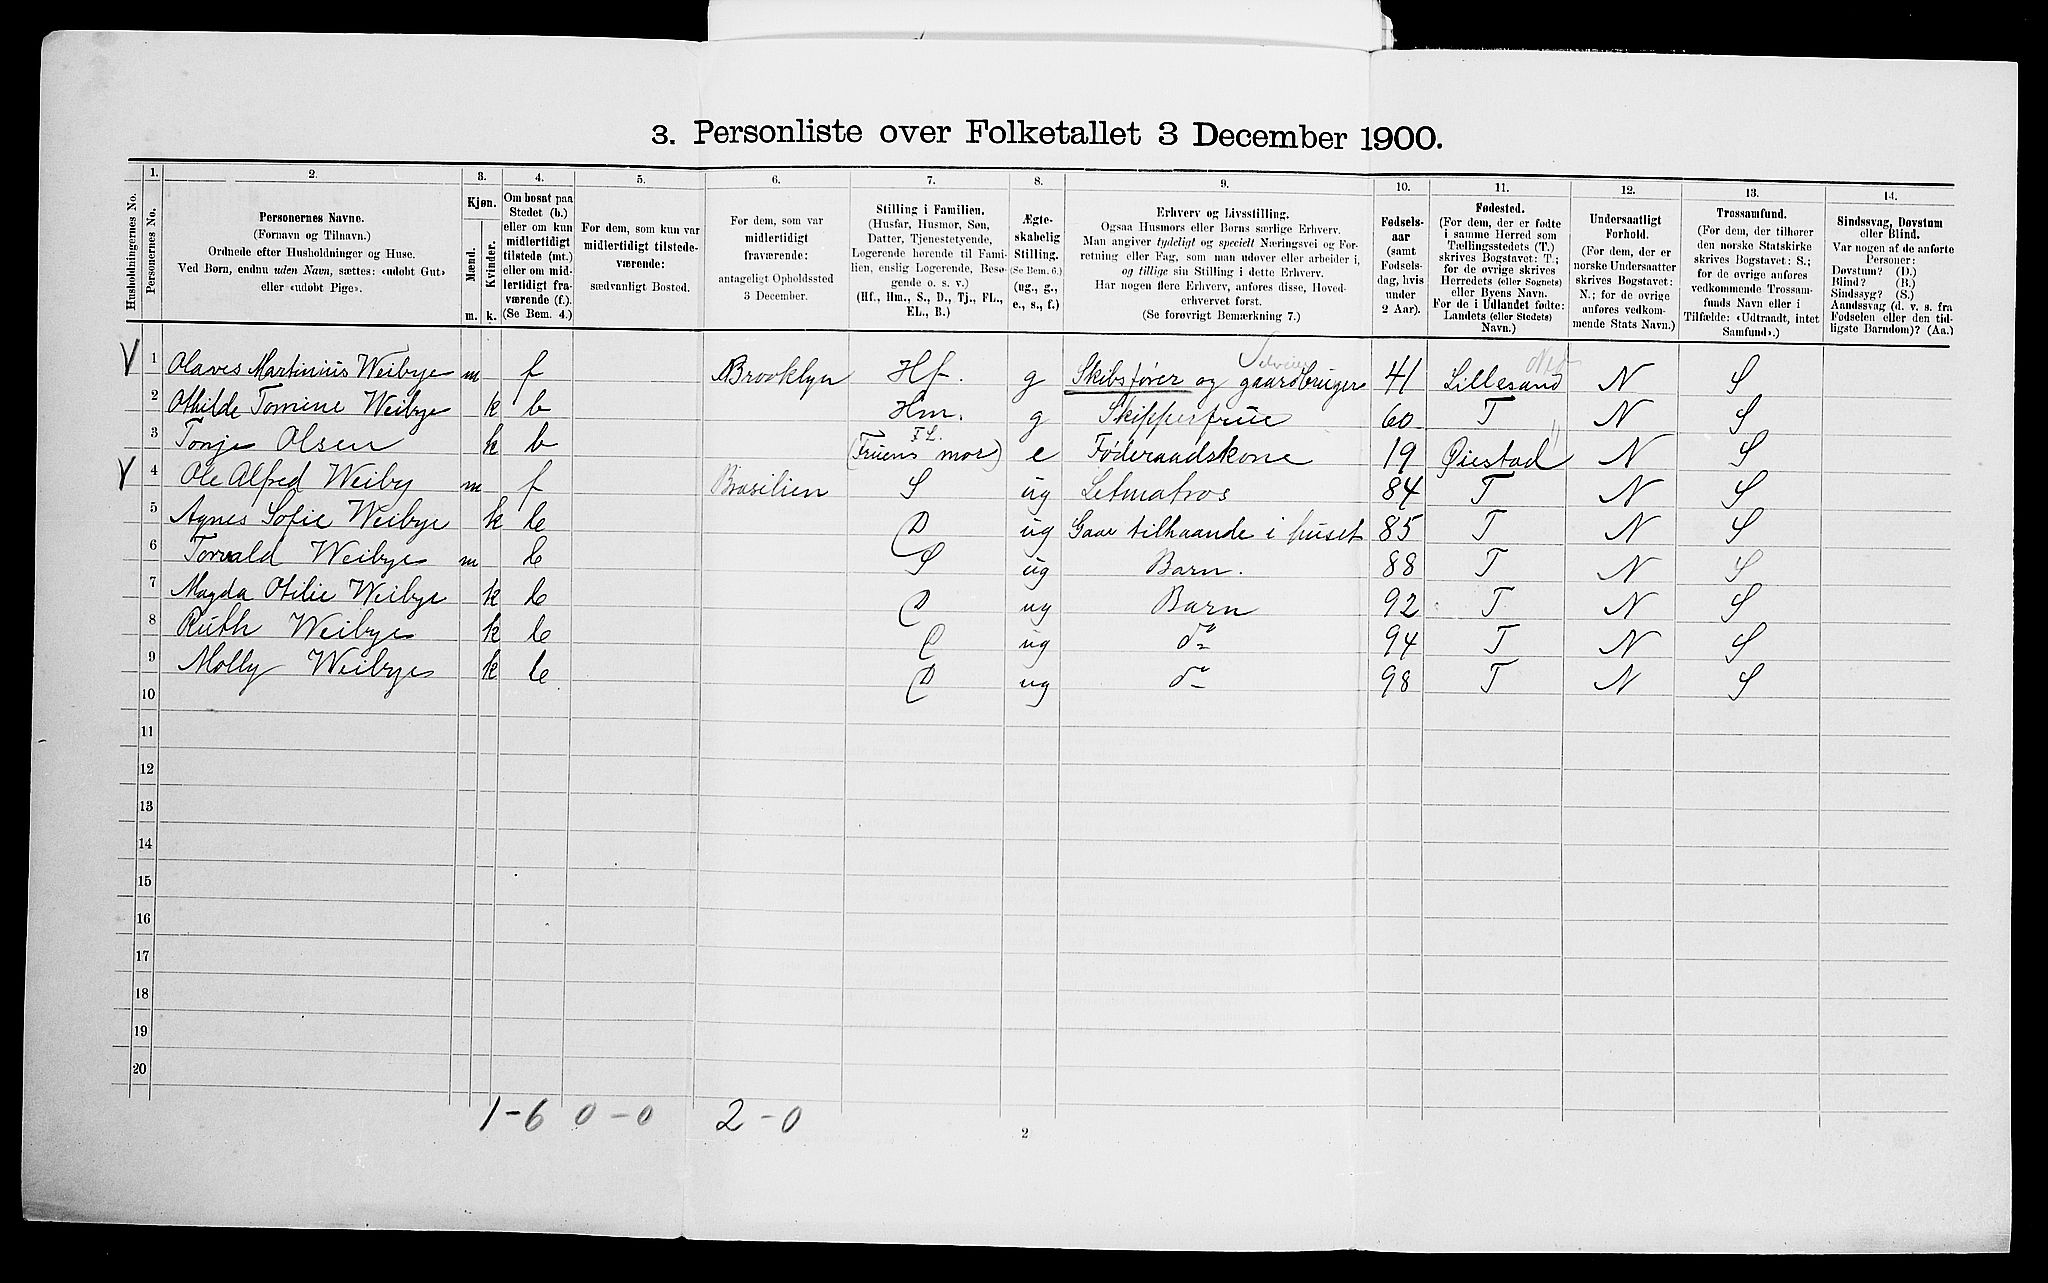 3. Personliste over Folketallet 3 December 1900.
Husholdningernes No.
1. Personernes No.
2. Personernes Navne.
(Fornavn og Tilnavn.)
Ordnede efter Husholdninger og Huse.
Ved Børn, endnu uden Navn, sættes: «udøbt Gut»
eller «udøbt Pige».
3. Kjøn.
Mænd. m.
Kvinder. k.
4. Om bosat paa
Stedet (b.)
eller om kun
midlertidigt
tilstede (mt.)
eller om mid-
lertidigt fra-
værende (f.).
(Se Bem. 4.)
5. For dem, som kun var
midlertidigt tilstede-
værende:
sædvanligt Bosted.
6. For dem, som var
midlertidigt
fraværende:
antageligt Opholdssted
3 December.
7. Stilling i Familien.
(Husfar, Husmor, Søn,
Datter, Tjenestetyende,
Logerende hørende til Fami-
lien, enslig Logerende, Besø-
gende o. s. v.)
(Hf., Hm., S., D., Tj., FL.,
EL., B.)
8. Ægte-
skabelig
Stilling.
(Se Bem. 6.)
(ug., g.,
e., s., f.)
9. Erhverv og Livsstilling.
Ogsaa Husmors eller Børns særlige Erhverv.
Man angiver tydeligt og specielt Næringsvei og For-
retning eller Fag, som man udøver eller arbeider i,
og tillige sin Stilling i dette Erhverv.
Har nogen flere Erhverv, anføres disse, Hoved-
erhvervet først.
(Se forøvrigt Bemærkning 7.)
10. Fødsels-
aar
(samt
Fødsels-
dag, hvis
under
2 Aar).
11. Fødested.
(For dem, der er fødte
i samme Herred som
Tællingsstedets (T.)
skrives Bogstavet: T.;
for de øvrige skrives
Herredets (eller Sognets)
eller Byens Navn.
For de i Udlandet fødte:
Landets (eller Stedets)
Navn.)
12. Undersaatligt
Forhold.
(For dem, der er
norske Undersaatter
skrives Bogstavet:
N.; for de øvrige
anføres vedkom-
mende Stats Navn.)
13. Trossamfund.
(For dem, der tilhører
den norske Statskirke
skrives Bogstavet: S.;
for de øvrige anføres
vedkommende Trossam-
funds Navn eller i
Tilfælde: «Udtraadt, intet
Samfund».)
14. Sindssvag, Døvstum
eller Blind.
Var nogen af de anførte
Personer:
Døvstum? (D.)
Blind? (B.)
Sindssyg? (S.)
Aandssvag (d. v. s. fra
Fødselen eller den tid-
ligste Barndom)? (Aa.)
1 Olaves Martinius Weibye m f Brooklyn Hf. g Skibsfører og gaardbruger 41 Lillesand N S
2 Othilde Tomine Weibye k b Hm. g Skippersfrue 60 T N S
3 Tonje Olsen k b FL. (Fruens mor) e Føderaadskone 19 Øiestad N S
4 Ole Alfred Weiby m f Brasilien S ug Letmatros 84 T N S
5 Agnes Sofie Weibye k b D ug Gaar tilhaande i huset 85 T N S
6 Torvald Weibye m b S ug Barn. 88 T N S
7 Magda Otilie Weibye k b D ug Barn 92 T N S
8 Ruth Weibye k b D ug do 94 T N S
9 Molly Weibye k b D ug do 98 T N S
10
11
12
13
14
15
16
17
18
19
20
1-6 0-0 2-0
2